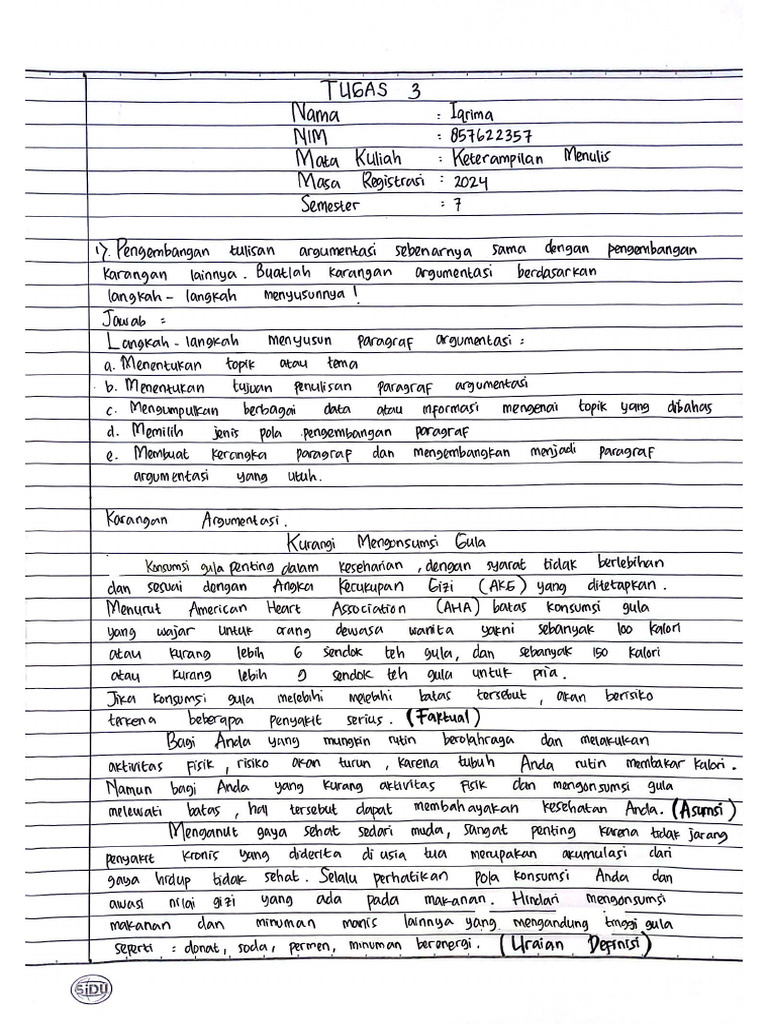 TUGAS 3
Nama : Iqrima
NIM : 857622357
Mata Kuliah : Keterampilan Menulis
Masa Registrasi : 2024
Semester : 7
1). Pengembangan tulisan argumentasi sebenarnya sama dengan pengembangan
karangan lainnya. Buatlah karangan argumentasi berdasarkan
langkah - langkah menyusunnya !
Jawab :
Langkah - langkah menyusun paragraf argumentasi :
a. Menentukan topik atau tema
b. Menentukan tujuan penulisan paragraf argumentasi
c. Mengumpulkan berbagai data atau informasi mengenai topik yang dibahas
d. Memilih jenis pola pengembangan paragraf
e. Membuat kerangka paragraf dan mengembangkan menjadi paragraf
argumentasi yang utuh.
Karangan Argumentasi.
Kurangi Mengonsumsi Gula
Konsumsi gula penting dalam keseharian, dengan syarat tidak berlebihan
dan sesuai dengan Angka Kecukupan Gizi (AKG) yang ditetapkan.
Menurut American Heart Association (AHA) batas konsumsi gula
yang wajar untuk orang dewasa wanita yakni sebanyak 100 kalori
atau kurang lebih 6 sendok teh gula, dan sebanyak 150 kalori
atau kurang lebih 9 sendok teh gula untuk pria.
Jika konsumsi gula melebihi melebihi batas tersebut, akan berisiko
terkena beberapa penyakit serius. (Faktual)
Bagi Anda yang mungkin rutin berolahraga dan melakukan
aktivitas fisik, risiko akan turun, karena tubuh Anda rutin membakar kalori.
Namun bagi Anda yang kurang aktivitas fisik dan mengonsumsi gula
melewati batas, hal tersebut dapat membahayakan kesehatan Anda. (Asumsi)
Menganut gaya sehat sedari muda, sangat penting karena tidak jarang
penyakit kronis yang diderita di usia tua merupakan akumulasi dari
gaya hidup tidak sehat. Selalu perhatikan pola konsumsi Anda dan
awasi nilai gizi yang ada pada makanan. Hindari mengonsumsi
makanan dan minuman manis lainnya yang mengandung tinggi gula
seperti : donat, soda, permen, minuman berenergi. (Uraian Definisi)
SiDU